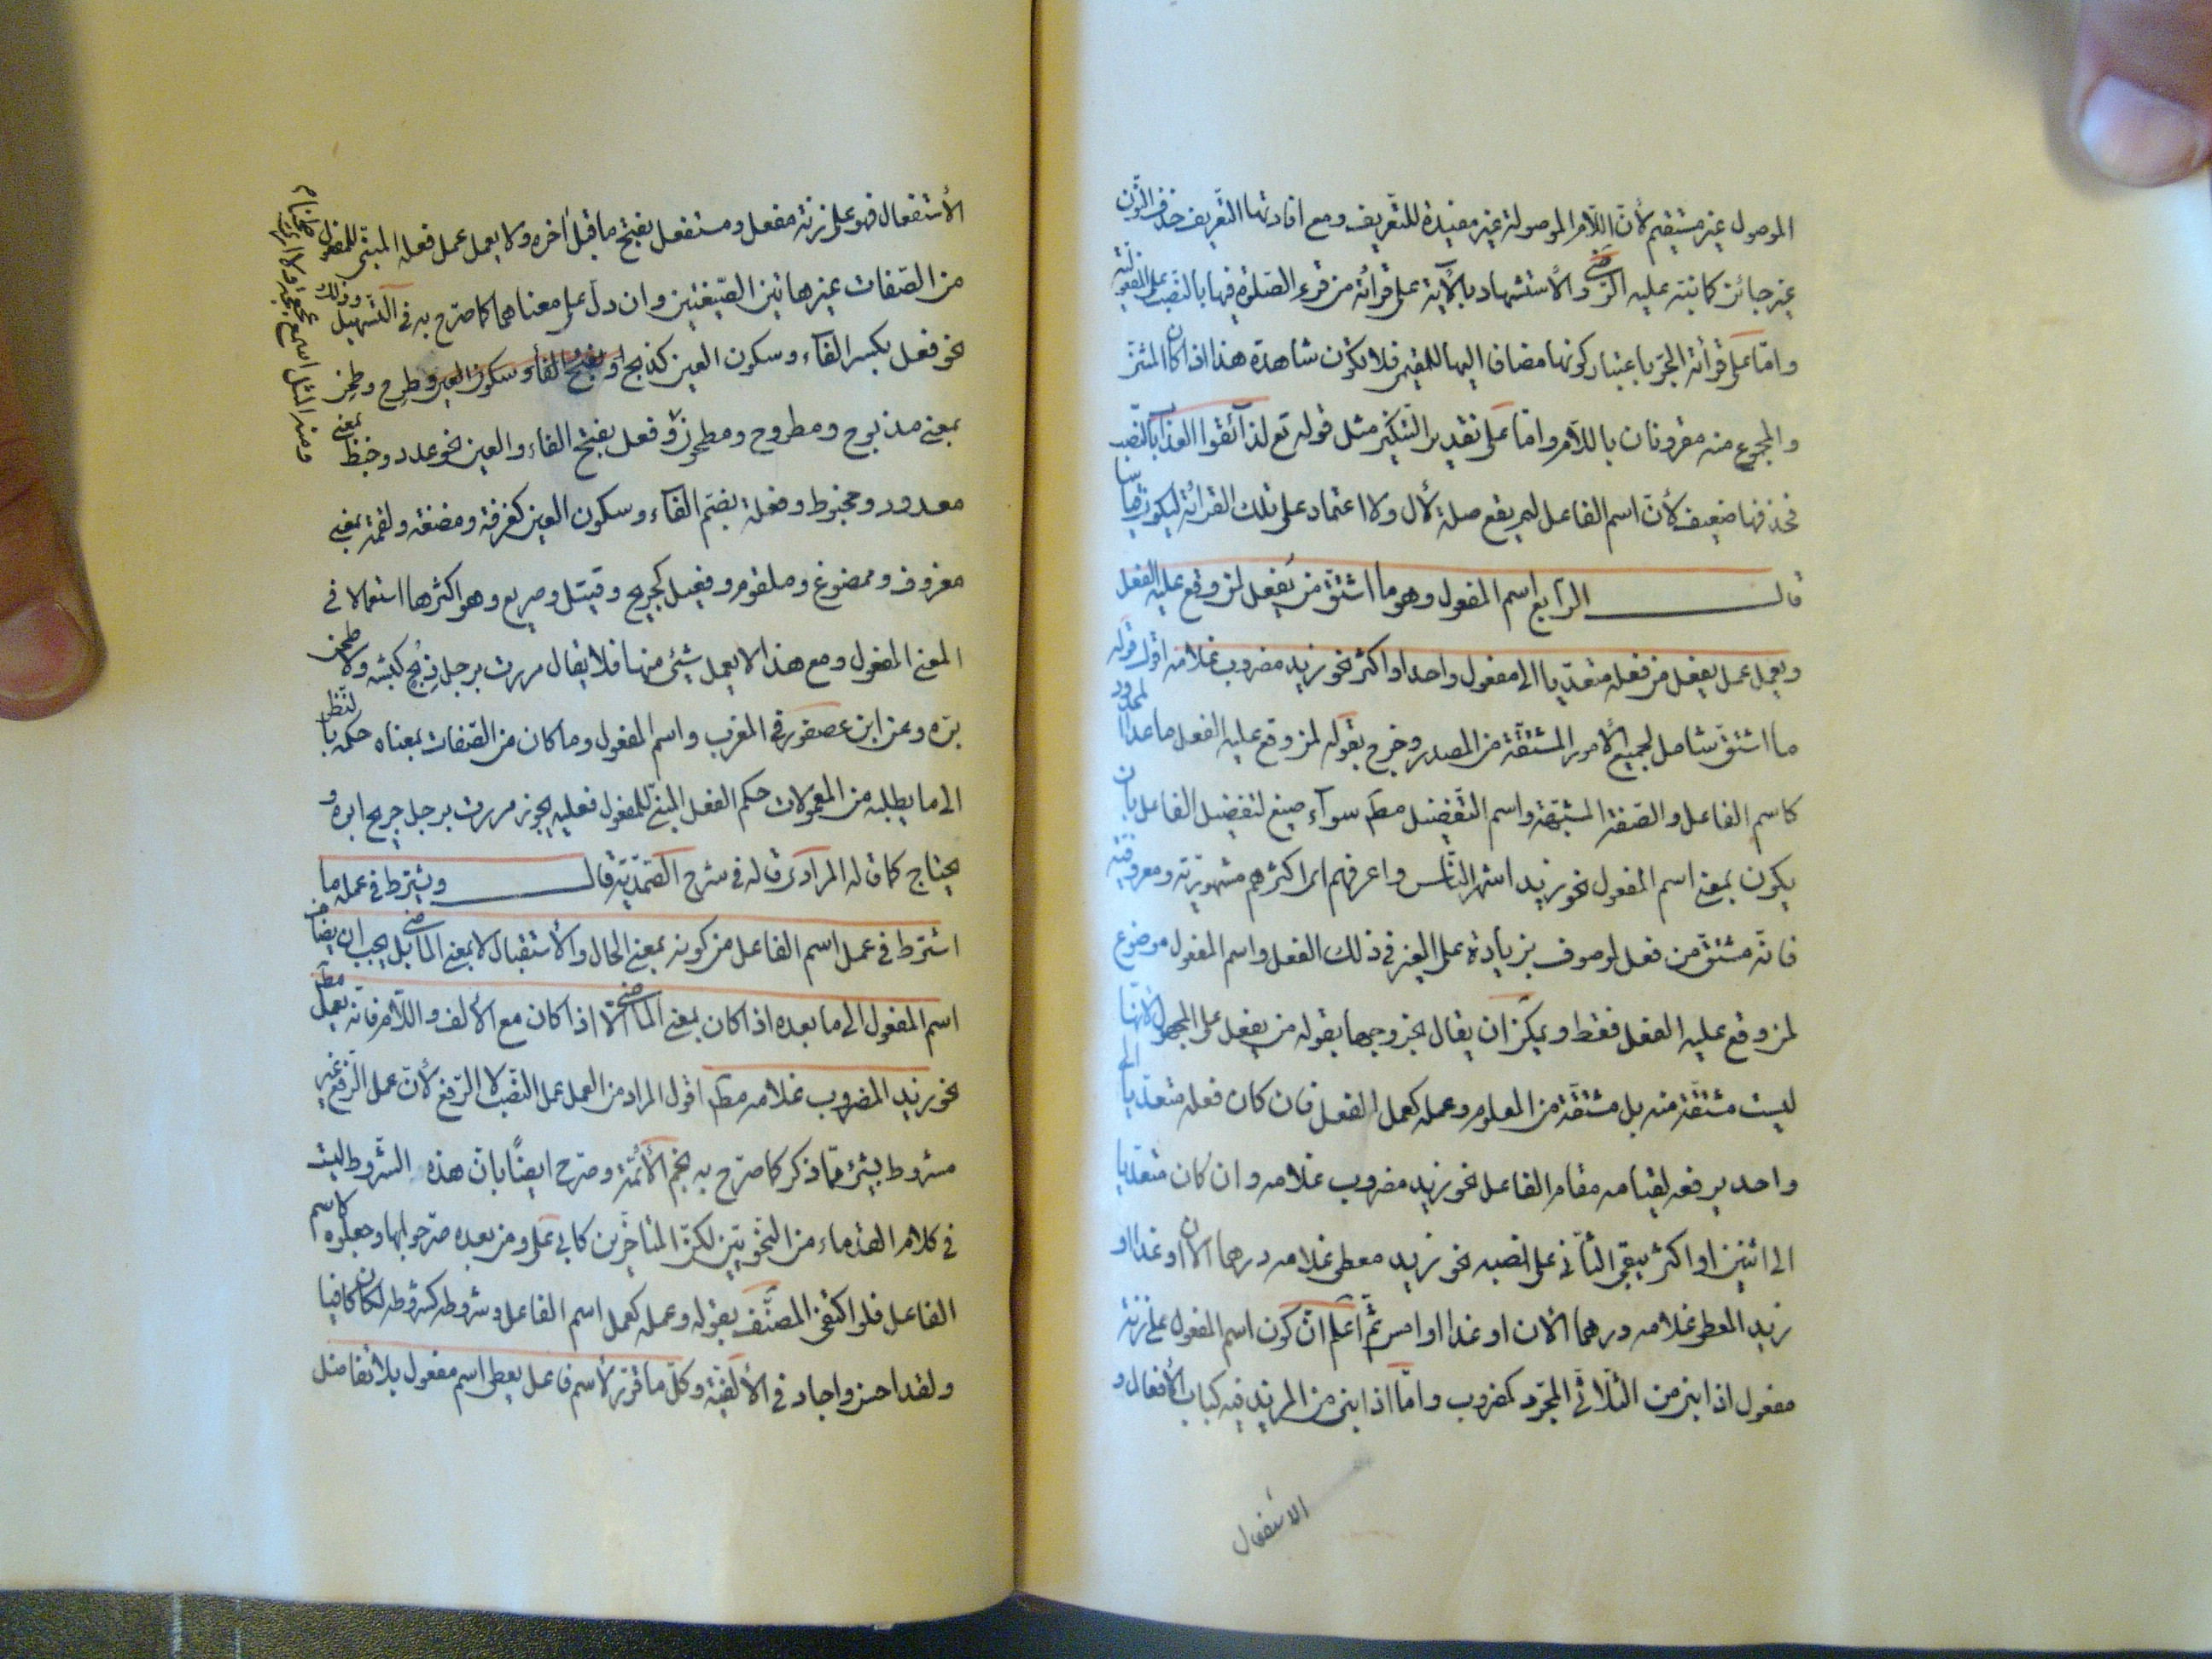 الموصول غير مستقيم لأنّ اللّام الموصولة غير مفيدة للتّعريف ومع افادتها التّعريف حذف النّون
غير جائز كما نبّه عليه الرّضى والأستشهاد بالأية على قرائة من قرء الصّلوة فيها بالنّصب على المفعوليّة
وامّا على قرأئة الجرّ باعتبار كونها مضافا اليها للمقيمى فلا يكون شاهدة هذا اذا كان المثنّى
والمجموع منه مقرونان باللّام وامّا على تقدير التّنكير مثل قوله تع لذآئقوا العذاب بالنّصب
فحذفها ضعيف لأنّ اسم الفاعل لم يقع صلة لأل ولا اعتماد على تلك القرائة ليكون قياسا
قال الرّابع اسم المفعول وهو ما اشتقّ من يُفعل لمن وقع عليه الفعل
ويعمل عمل يفعل من فعله متعدّيا الى مفعول واحد او اكثر نحو زيد مضروب غلامه اقول قوله
ما اشتقّ شامل لجميع الأمور المشتقّة من المصدر وخرج بقوله لمن وقع عليه الفعل ما عدا المحدود
كاسم الفاعل والصّفة المشبّهة واسم التّفضيل مط سوآء صيغ لتفضيل الفاعل بان
يكون بمعنى اسم المفعول نحو زيد اشهر النّاس واعرفهم اى اكثرهم مشهوريّة ومعروفيّة
فانّه مشتقّ من فعل لموصوف بزيادة على الغير فى ذلك الفعل واسم المفعول موضوع
لمن وقع عليه الفعل فقط ويمكن ان يقال بخروجها بقوله من يفعل على المجهول لأنّها
ليست مشتقّة منه بل مشتقّة من المعلوم وعمله كعمل الفعل فان كان فعله متعدّيا الى
واحد يرفعه لقيامه مقام الفاعل نحو زيد مضروب غلامه وان كان متعدّيا
الى اثنين او اكثر يبقى الثّانى على نصبه نحو زيد معطى غلامه درهما الان او غدا او
زيد المعطى غلامه درهما الان او غدا او امس ثمّ اعلم انّ كون اسم المفعول على زنة
مفعول اذا ابنى من الثّلاثى المجرّد كمضروب وامّا اذا ابنى من المزيد فيه كباب الأفعال و
الاستفعال
الأستفعال فهو على زنة مفعل ومستفعل بفتح ما قبل أخره ولا يعمل عمل فعله المبنى للمفعول
من الصّفات غير هاتين الصّيغتين وان دلّ على معناهما كما صرّح به فى التّسهيل وذلك
نحو فعل بكسر الفآء وسكون العين كذبح او بفتح الفأ وسكون العين وطرح وطحن
بمعنى مذبوح ومطروح ومطحون وفعل بفتح الفاء والعين نحو عدد وخبط بمعنى
معدود ومخبوط وفعلة بضم الفآء وسكون العين كغرفة ومضغة ولقمة بمعنى
مغروف وممضوغ وملقوم وفعيل كجريح وقتيل وصريع وهو اكثرها استعمالا فى
المعنى المفعول ومع هذا لا يعمل شيئ منها فلا يقال مررت برجل ذبح كبشه ولا طحن
برّه وعن ابن عصفور فى المقرب واسم المفعول وما كان من الصّفات بمعناه حكمه بالنّظر
الى ما يطلبه من المعمولات حكم الفعل المبنىّ للمفعول فعليه يجوز مررت برجل جريح ابوه و
يحتاج كما قاله المرادى قاله فى شرح الصّمديّة قال ويشترط فى عمله ما
اشترط فى عمل اسم الفاعل من كونه بمعنى الحال والأستقبال لا بمعنى الماضى بل يجب ان يضاف
اسم المفعول الى ما بعده اذا كان بمعنى الماضى الّا اذا كان مع الألف واللّام فانّه يعمل مط
نحو زيد المضروب غلامه مط اقول المراد من العمل عمل النّصب لا الرّفع لأنّ عمل الرّفع غير
مشروط بشئ ممّا ذكر كما صرّح به نجم الأئمّة وصرّح ايضًا بانّ هذه الشّروط ليست
فى كلام القدماء من النّحويّين لكن المتأخّرين كابى على ومن بعده صرّحوا بها وجعلوه كاسم
الفاعل فلو اكتفى المصنّف بقوله وعمله كعمل اسم الفاعل وشروطه كشروطه لكان كافيا
ولقد احسن واجاد فى الألفيّة وكلّ ما قرّر لأسم فاعل يعطى اسم مفعول بلا تفاضل